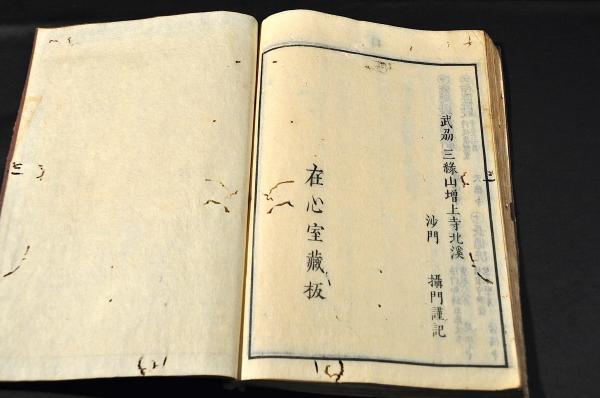 武刕 三緣山增上寺北溪
沙門 攝門謹記
在心室藏板